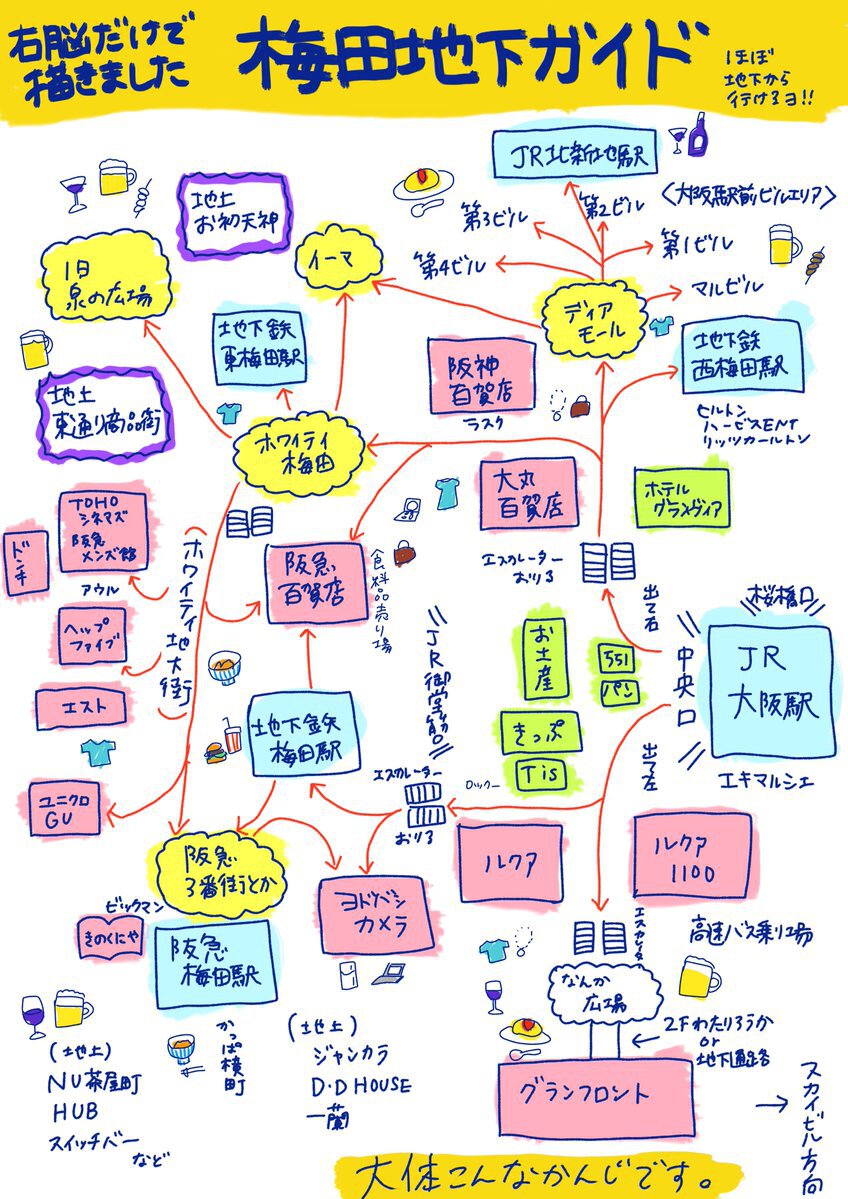 右脳だけで
描きました
梅田地下ガイド
ほぼ
地下から
行けるヨ!!
JR北新地駅
〈大阪駅前ビルエリア〉
第3ビル
第2ビル
第4ビル
第1ビル
マルビル
地土
お初天神
イーマ
1日
泉の広場
ディア
モール
地下鉄
東梅田駅
地下鉄
西梅田駅
阪神
百貨店
ラスク
ヒルトン
ハービスENT
リッツカールトン
地土
東通り商品街
ホワイティ
梅田
大丸
百貨店
ホテル
グランヴィア
TOHO
シネマズ
阪急
メンズ館
ドンキ
アウル
(ホワイティ地大街)
阪急
百貨店
食料品売り場
エスカレーター
おりる
出て右
桜橋口
中央口
JR
大阪駅
エキマルシェ
ヘップ
ファイブ
エスト
お土産
551
パン
JR御堂筋口
きっぷ
Tis
地下鉄
梅田駅
エスカレーター
おりる
ロッカー
出て左
ユニクロ
GU
阪急
3番街とか
ルクア
ルクア
1100
ビックマン
きのくにや
ヨドバシ
カメラ
阪急
梅田駅
エスカレーター
高速バス乗り工場
なんか
広場
2Fわたりろうか
or
地下通路
かっぱ横町
(地土)
NU茶屋町
HUB
スイッチバー
など
(地土)
ジャンカラ
D・D HOUSE
一蘭
グランフロント
スカイビル方向
大体こんなかんじです。